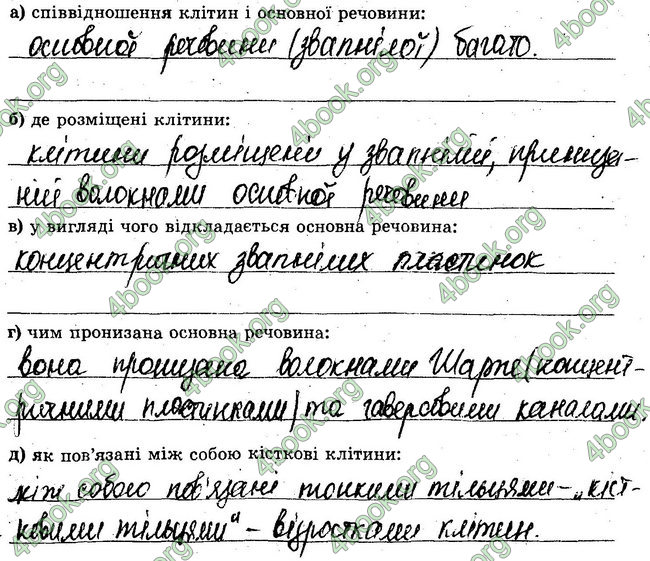 а) співвідношення клітин і основної речовини:
основної речовини (звапнілої) багато.
б) де розміщені клітини:
клітини розміщені у звапнілій, прониза-
ній волокнами основної речовини
в) у вигляді чого відкладається основна речовина:
концентричних звапнілих пластинок
г) чим пронизана основна речовина:
вона пронизана волокнами Шарпе/концент-
ричними пластинками/та гаверсовими каналами.
д) як пов'язані між собою кісткові клітини:
між собою пов'язані тонкими тільцями – „кіст-
ковими тільцями“ – відростками клітин.
4book.org